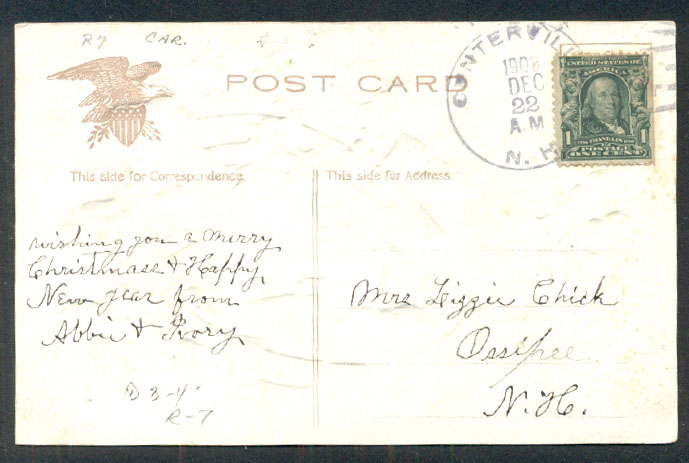 R7 CAR.
POST CARD
CENTERVIL
1908
DEC
22
A.M
N. H
UNITED STATES OF
AMERICA
1 1
POSTAGE
ONE CENT
This side for Correspondence.
This side for Address.
wishing you a Merry
Christmass & Happy
New year from
Abbie & Ivory
Mrs Lizzie Chick
Ossipee
N.H.
D 3-4
R-7